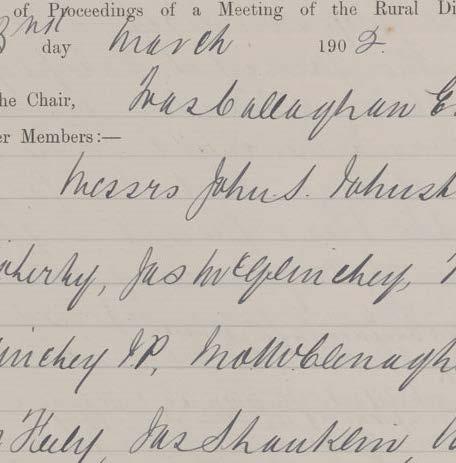 of Proceedings of a Meeting of the Rural Di
day March 1902.
he Chair, Callaghan E
er Members:—
Messrs John S. Johnst
oherty, Jas McGlinchey,
inchey J.P., McClenagh
Feely, Jas Shanklin,